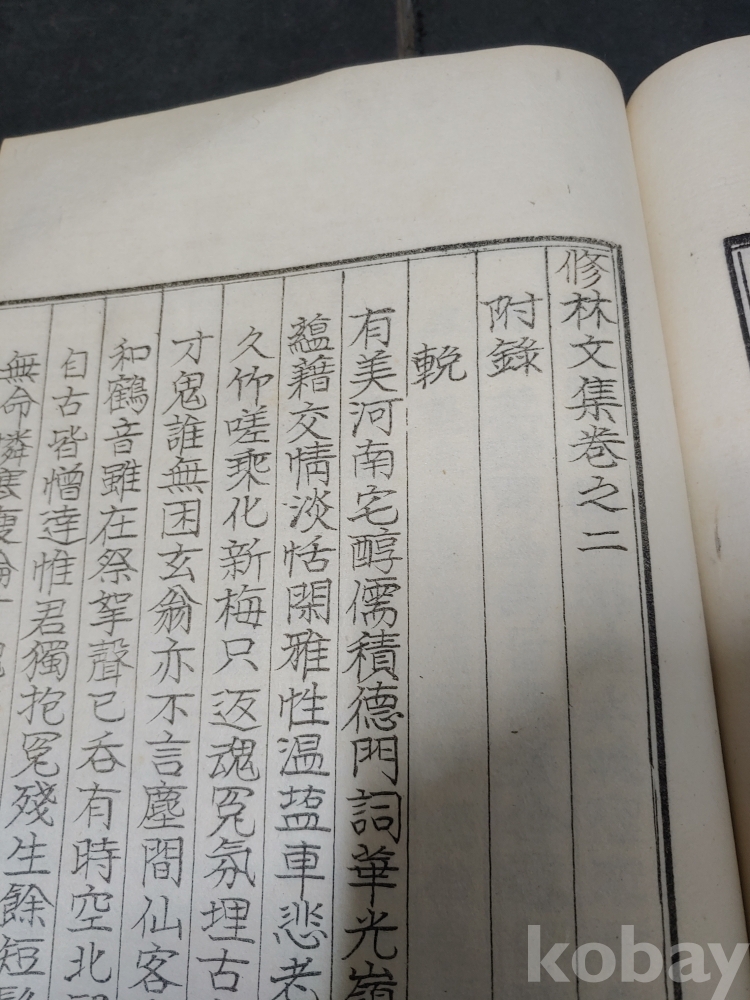 修林文集卷之二
附錄
輓
有美河南宅醇儒積德門詞華光嶺
蘊藉交情淡恬閑雅性溫蓝車悲老
久仰嗟乘化新梅只返魂冤氛埋古
才鬼誰無困玄翁亦不言塵間仙客
和鶴音雖在祭挐聲已吞有時空北
自古皆憎達惟君獨抱冤殘生餘短
無命憐寒瘦
kobay